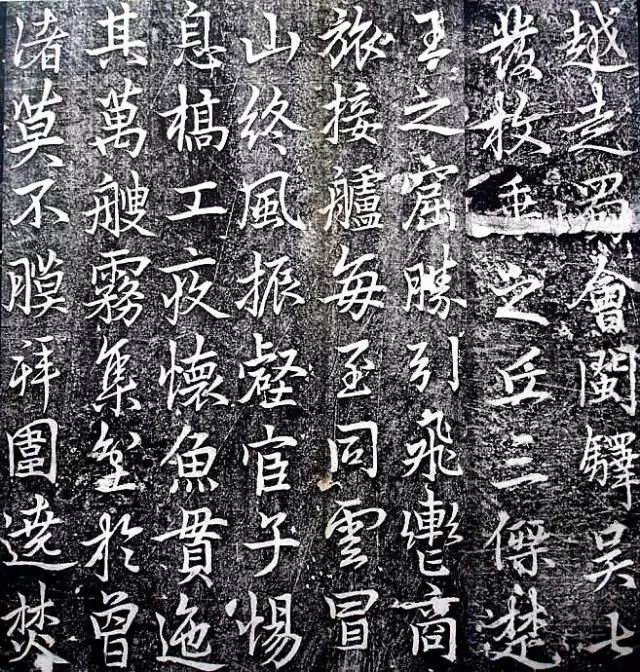 越走蜀會閩驛吳七
發枚乘之丘三傑楚
王之窟勝引飛轡商
旅接艫每至同雲冒
山終風振壑官子惕
息槁工夜懷魚貫迤
其萬艘霧集坌於曾
渚莫不膜拜圍遶焚